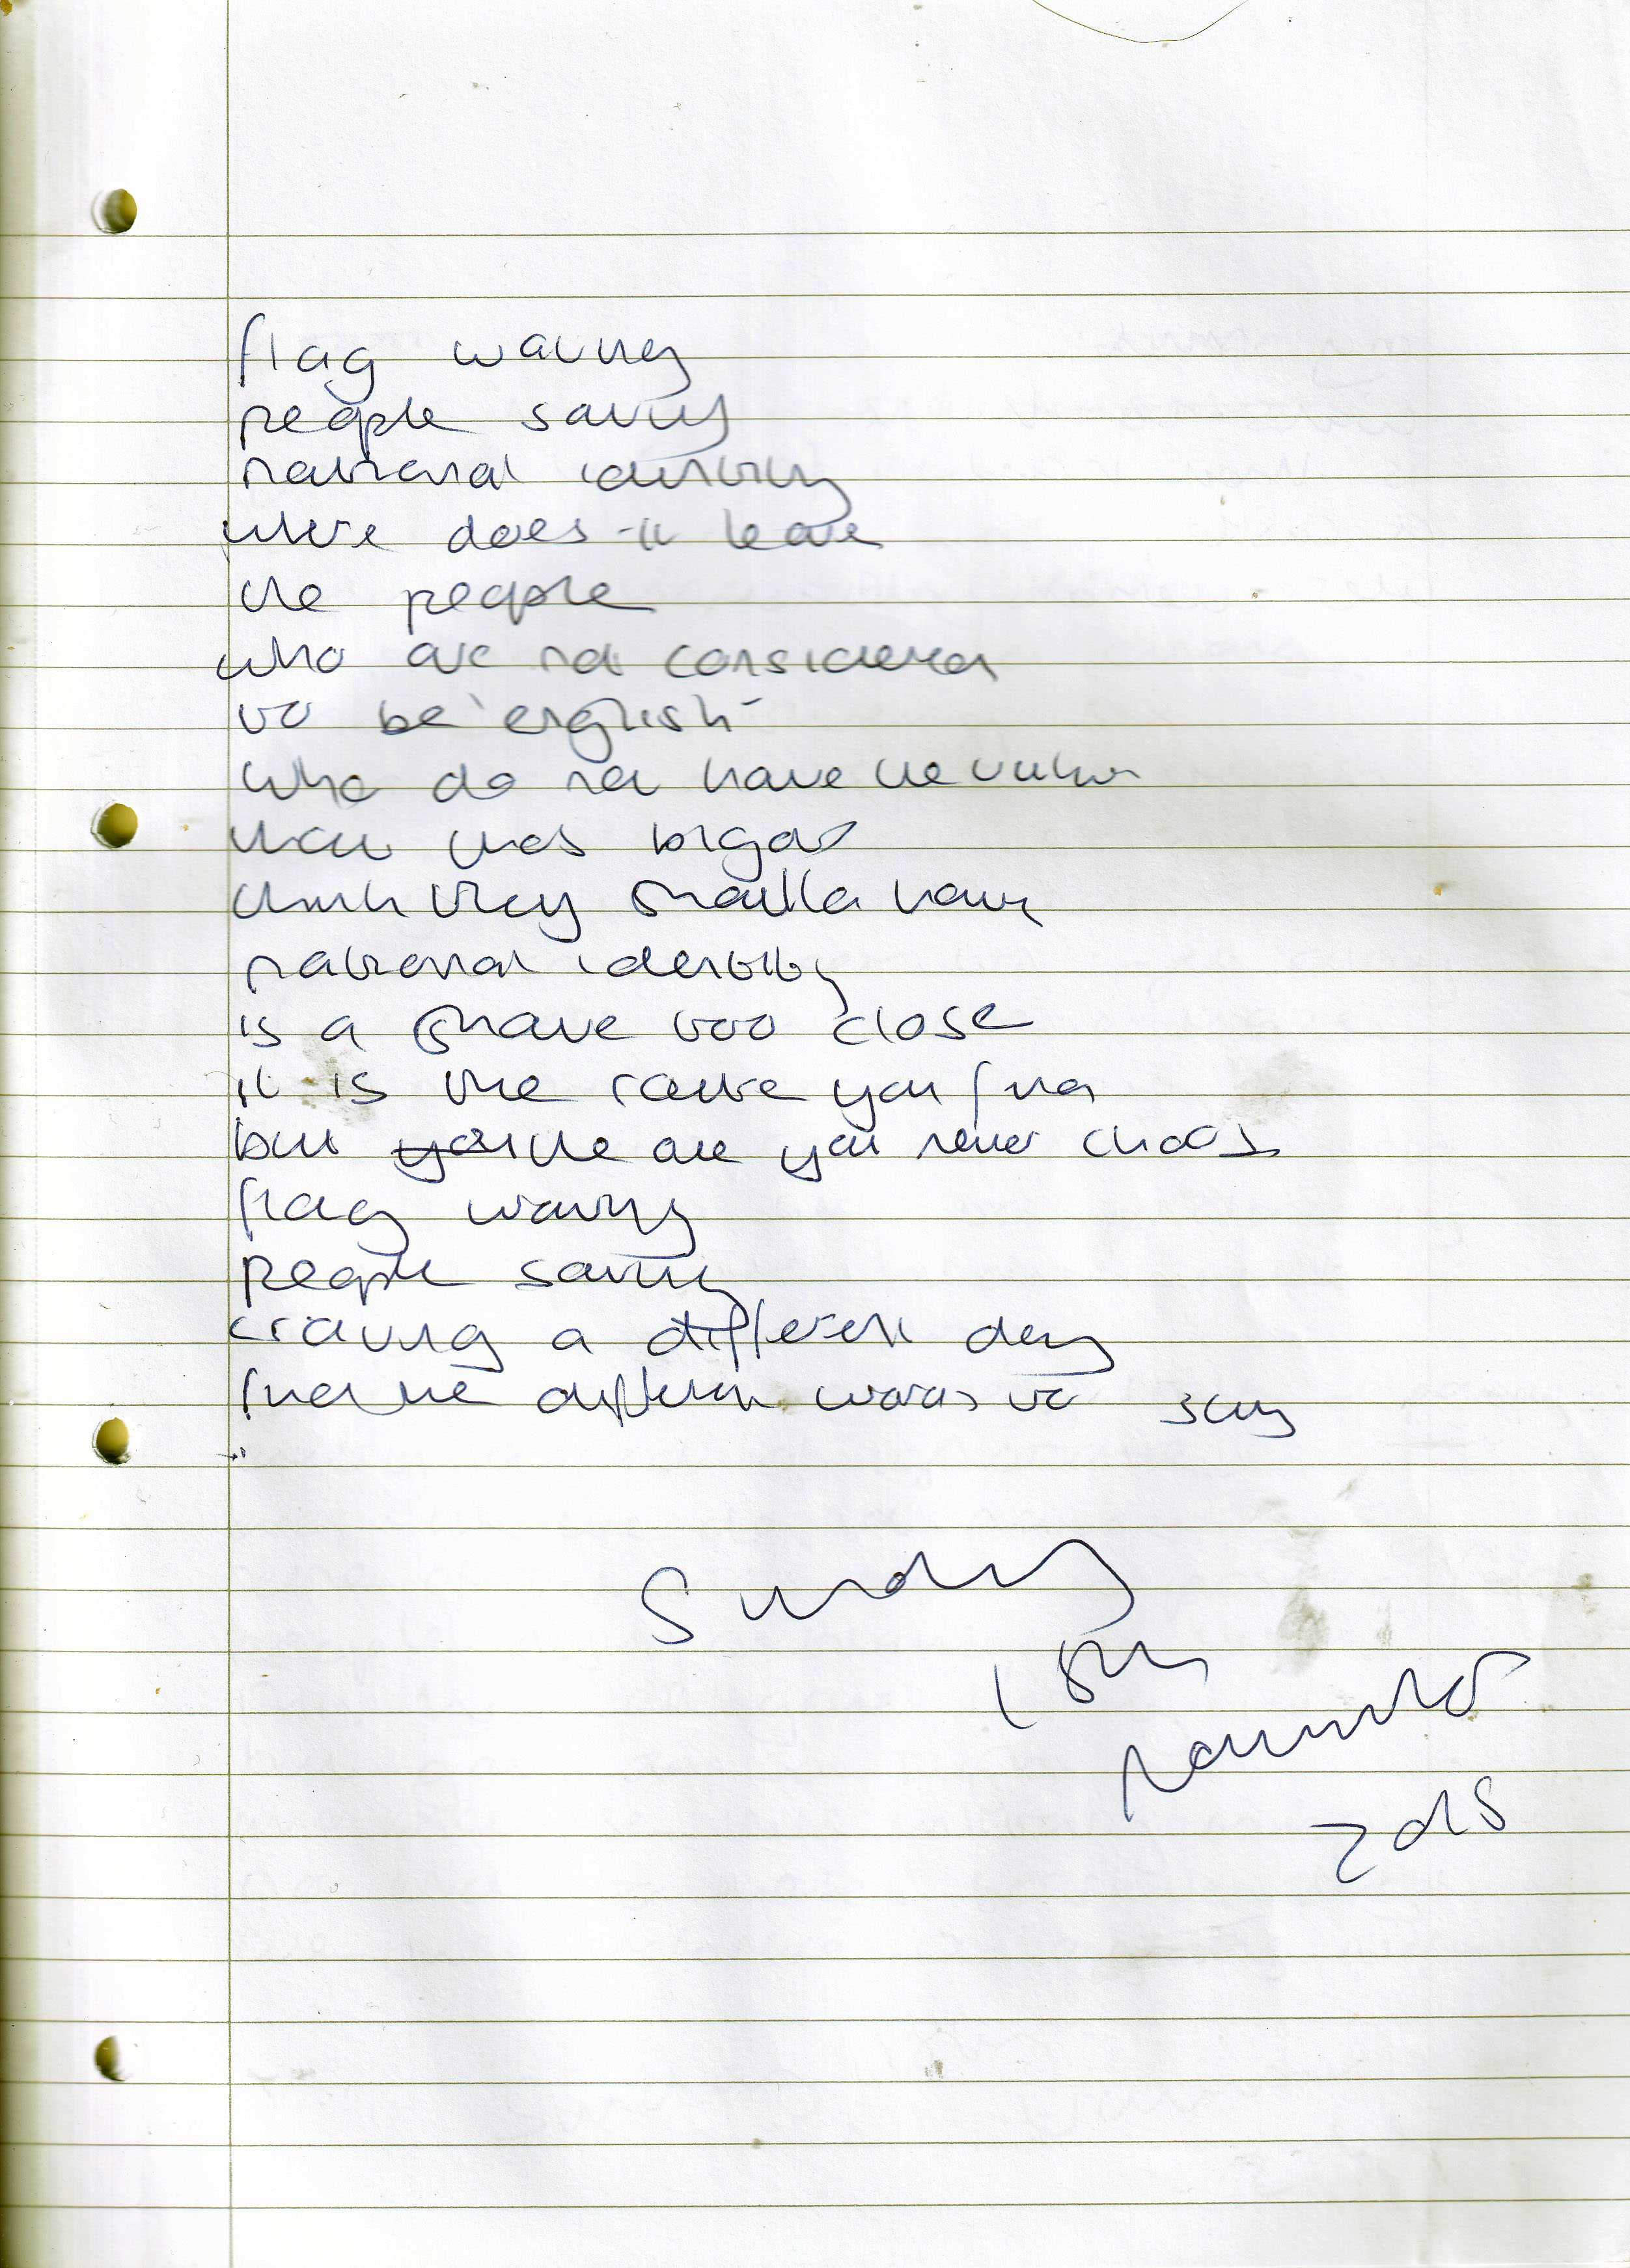 flag waving
people saving
national identity
where does it leave
the people
who are not considered
to be 'english'
who do not have the
that this bigot
think they should have
national identity
is a shave too close
it is the route you find
but the one you never choose
flag waving
people saving
craving a different day
find the different words to say
Sunday
18th
november
2018